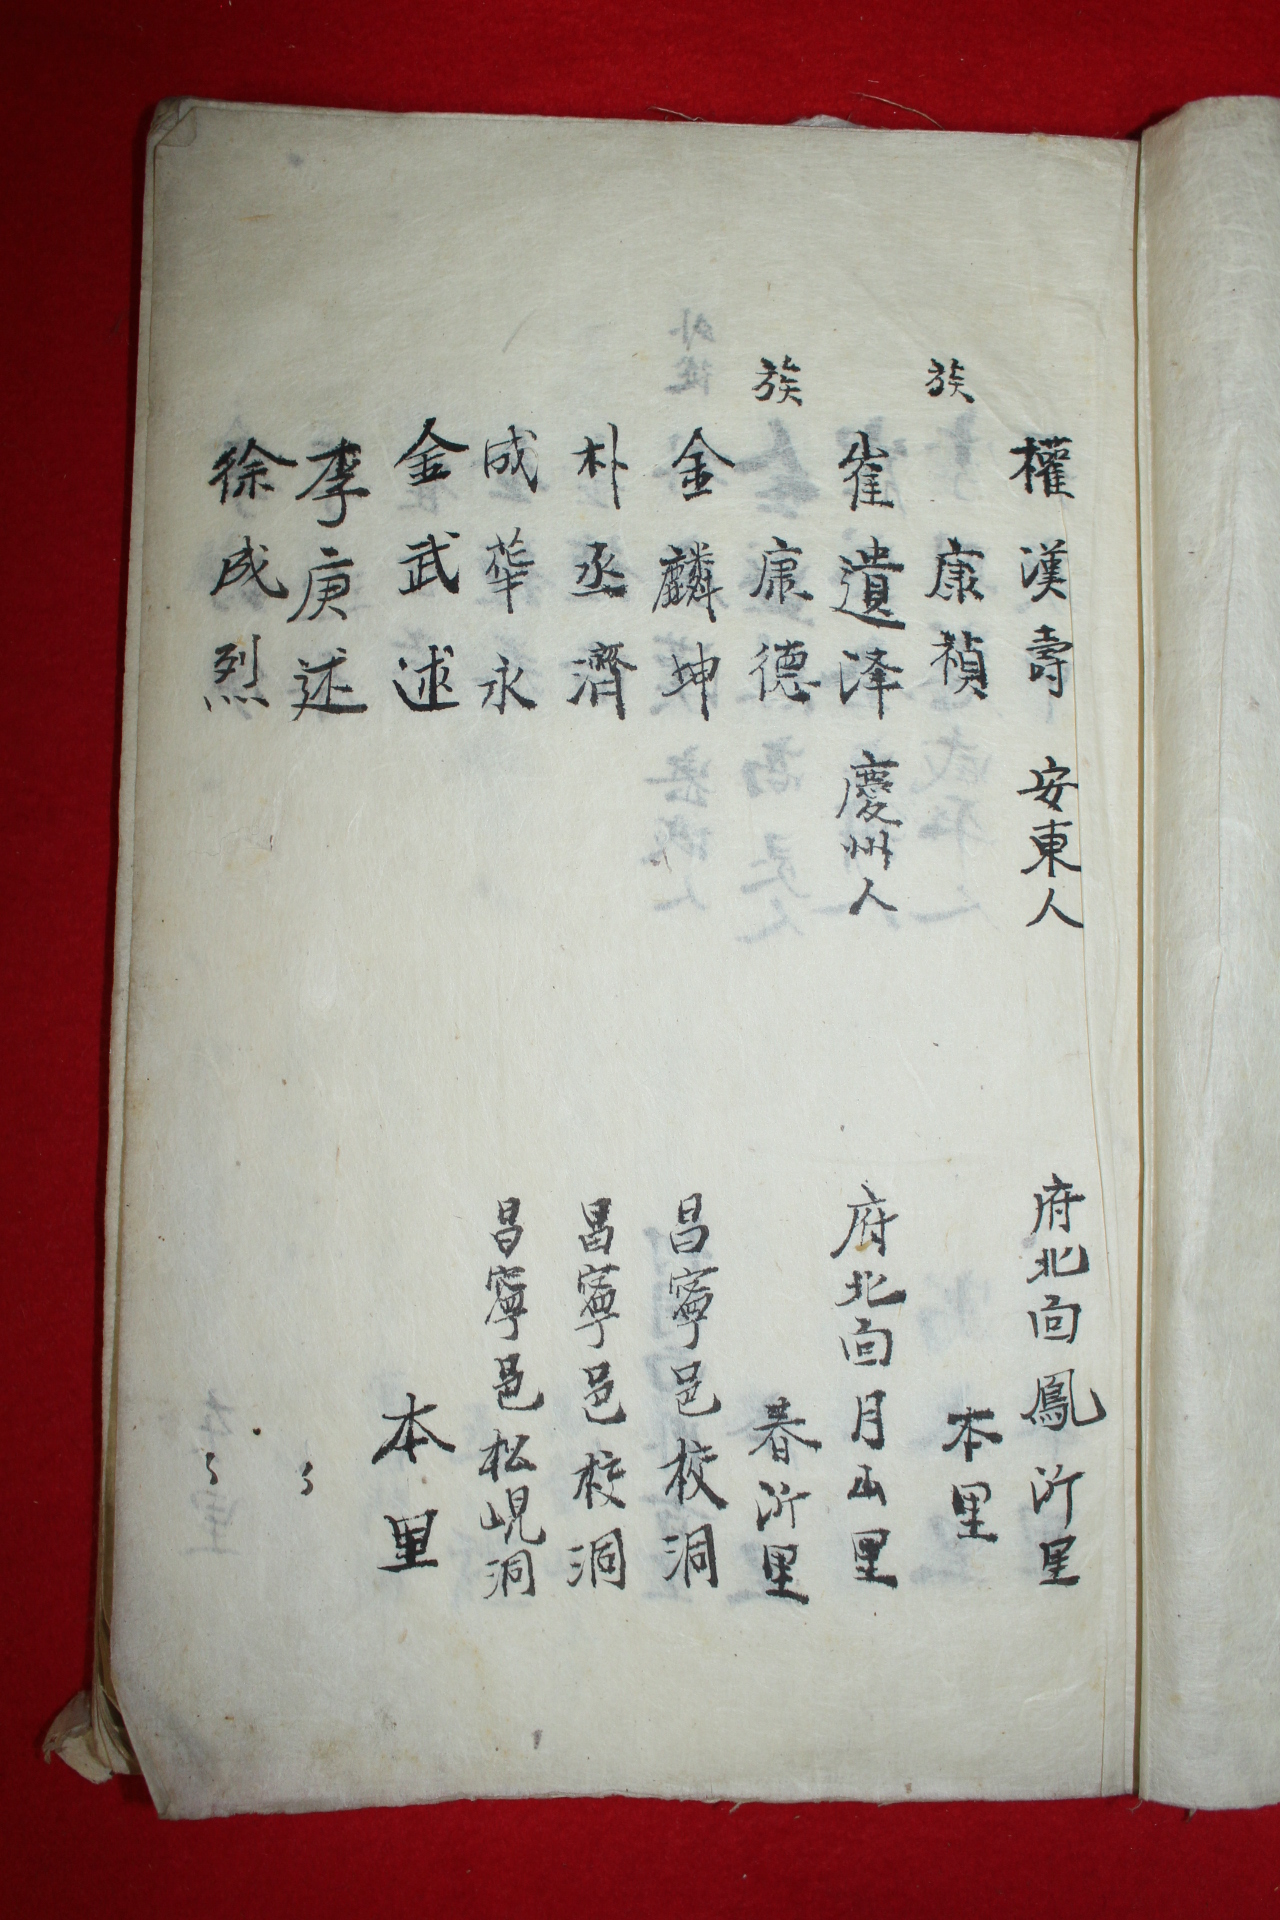 權漢壽 安東人 府北面鳳沂里
族 康禎 本里
崔遺澤 慶州人 府北面月山里
族 康德 春沂里
金麟坤 昌寧邑校洞
朴丞濟 昌寧邑校洞
成華永 昌寧邑松峴洞
金武述 本里
李庚述 〃
徐成烈 〃